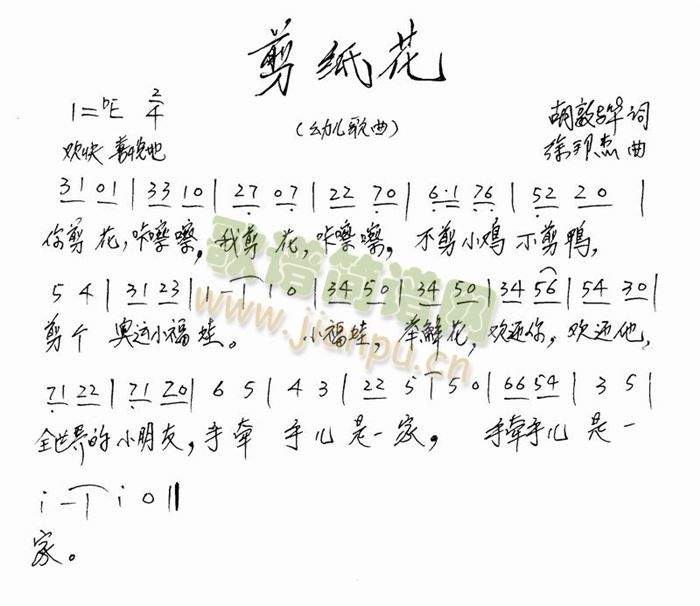 剪纸花
1=♭E 2/4
(幼儿歌曲)
胡敦骅 词
欢快 喜悦地
徐邦杰 曲
31 01 | 33 10 | 27 07 | 22 70 | 6·1 76 | 52 20 |
你剪花,咔嚓嚓,我剪花,咔嚓嚓,不剪小鸡不剪鸭,
5 4 | 31 23 | 1 - | 1 0 | 34 50 | 34 50 | 34 56 | 54 30 |
剪个 奥运小福娃。 小福娃,举鲜花,欢迎你,欢迎他,
71 22 | 71 20 | 6 5 | 4 3 | 22 5 | 5 0 | 66 54 | 3 5 |
全世界的小朋友,手牵 手儿是一家, 手牵手儿是一
i - | i 0 ‖
家。
歌谱简谱网
www.jianpu.cn